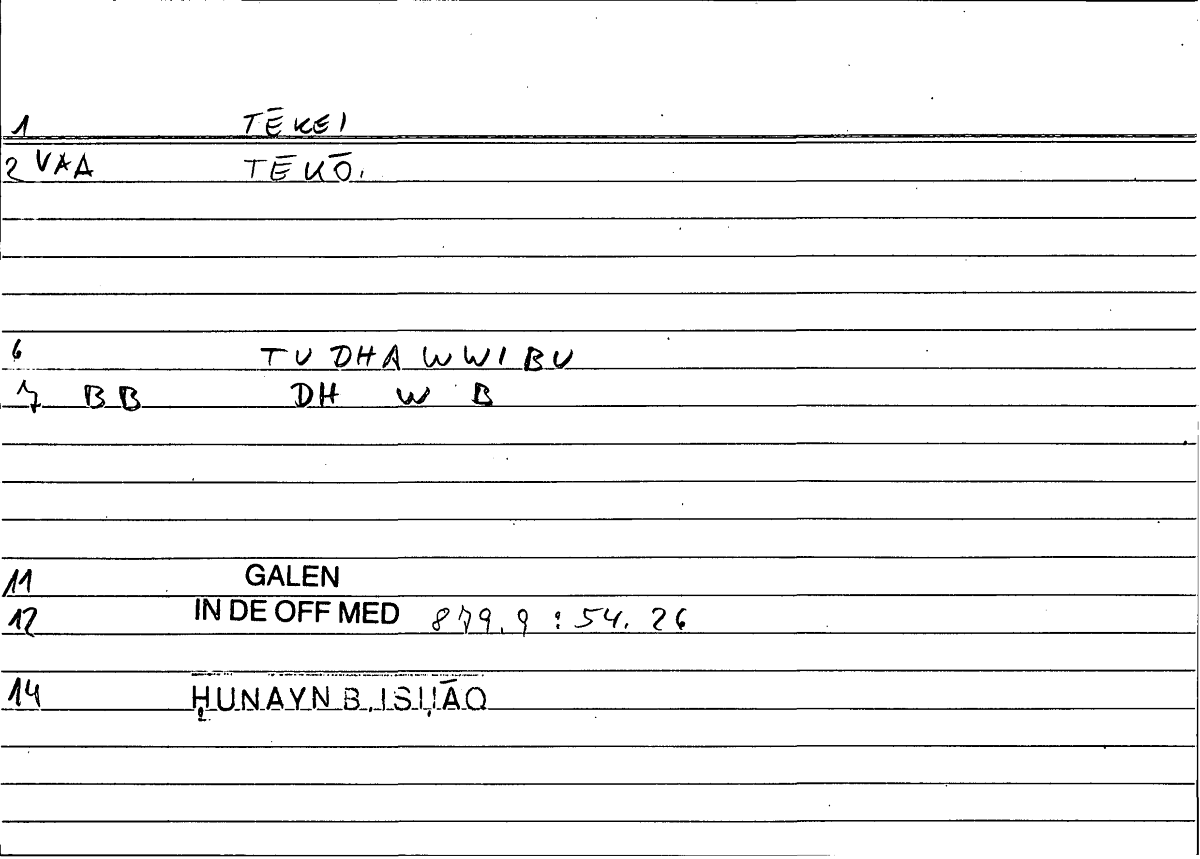 1 TĒKEI
2 VAA TĒKŌ.
6 TU DHA WWI BU
7 BB DH W B
11 GALEN
12 IN DE OFF MED 879.9 : 54.26
14 ḤUNAYN B. ISḤĀQ